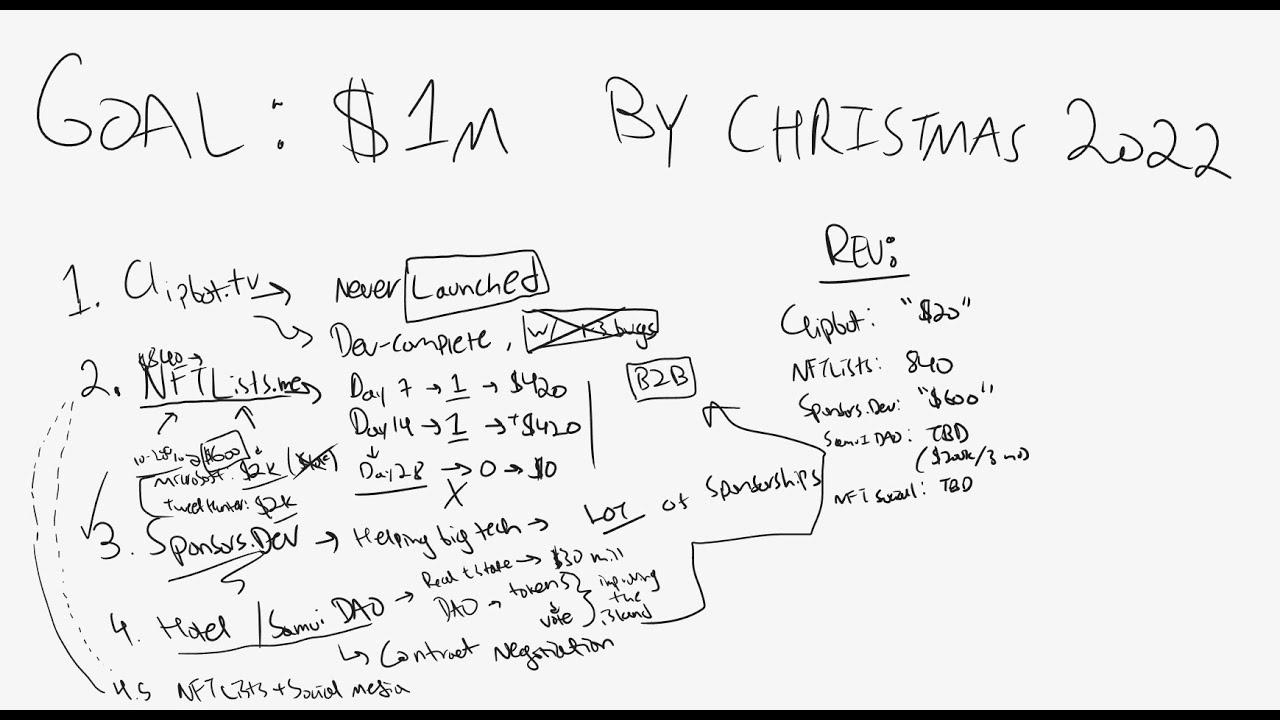 GOAL: $1M BY CHRISTMAS 2022
1. Clipbot.tv → Never Launched
Dev-complete, w/ bugs
$840 →
2. NFTLists.me
Day 7 → 1 → $420
Day 14 → 1 → +$420
Day 28 → 0 → $0
X
B2B
$600
Microsoft: $2K
TweetHunter: $2K
3. Sponsors.Dev → Helping big tech → LOT of Sponsorships
4. Hotel / Samui DAO → Real Estate → $30 mill
DAO → tokens
vote
improving
the
island
↳ Contract Negotiation
4.5 NFTLists + Social media
REV:
Clipbot: "$20"
NFTLists: 840
Sponsors.Dev: "$600"
Samui DAO: TBD
($200k/3 mo)
NFT Social: TBD